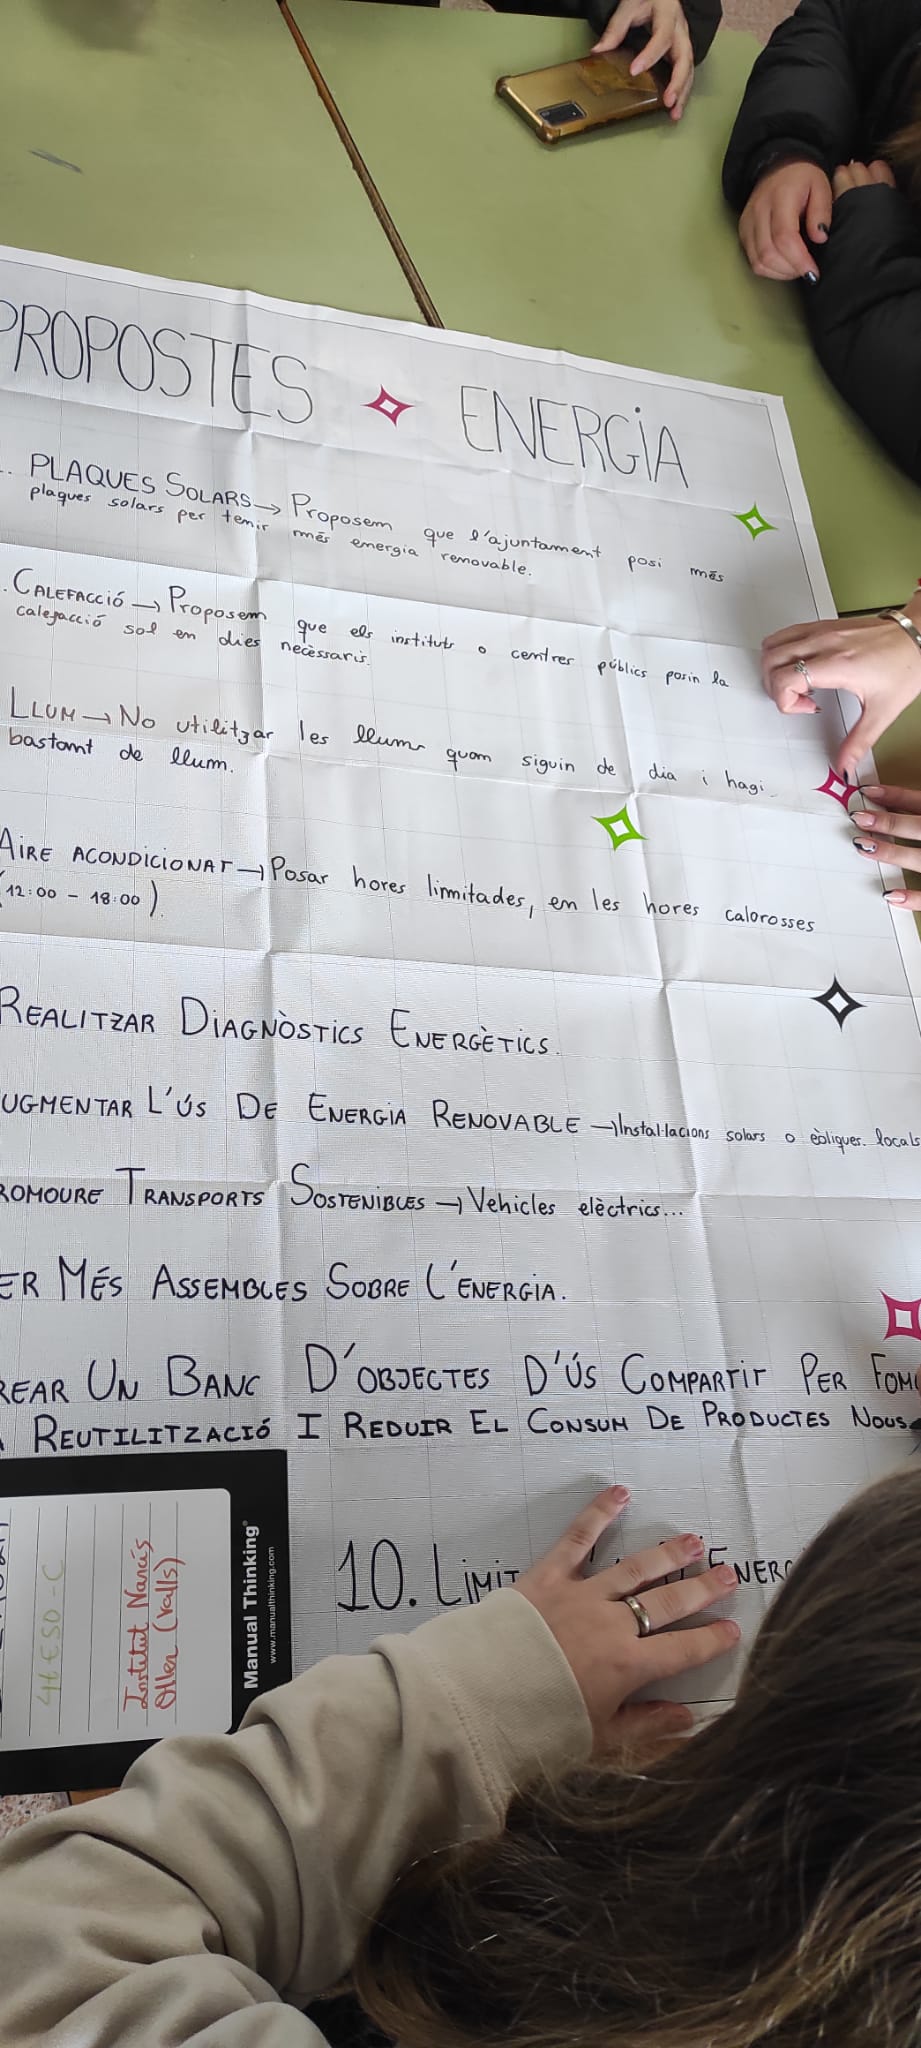 PROPOSTES ENERGIA
. PLAQUES SOLARS → Proposem que l'ajuntament posi més
plaques solars per tenir més energia renovable.
. CALEFACCIÓ → Proposem que els instituts o centres públics posin la
calefacció sol en dies necèssaris.
LLUM → No utilitzar les llums quan siguin de dia i hagi
bastant de llum.
AIRE ACONDICIONAT → Posar hores limitades, en les hores calorosses
(12:00 - 18:00).
REALITZAR DIAGNÒSTICS ENERGÈTICS.
UGMENTAR L'ÚS DE ENERGIA RENOVABLE → Instal·lacions solars o eòliques. locals
ROMOURE TRANSPORTS SOSTENIBLES → Vehicles elèctrics...
ER MÉS ASSEMBLES SOBRE L'ENERGIA.
REAR UN BANC D'OBJECTES D'ÚS COMPARTIT PER FOM
A REUTILITZACIÓ I REDUIR EL CONSUM DE PRODUCTES NOUS
10. LIMIT ENERG
4t ESO-C
Institut Narcís
Oller (Valls)
Manual Thinking®
www.manualthinking.com